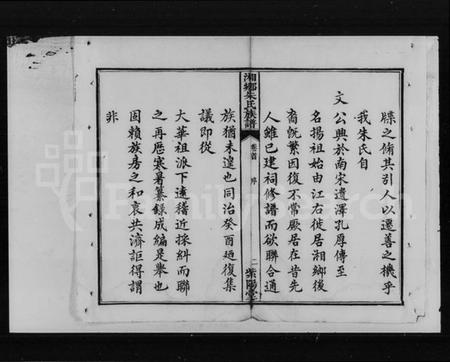 牒之脩其引人以還善之機乎
我朱氏自
文公興於南宋遺澤孔厚傳至
名揚祖始由江右徙居湘鄉後
裔旣繁因復不常厥居在昔先
人雖已建祠修譜而欲聯合通
湘鄉朱氏族譜
卷首
序
二
紫陽堂
族猶未遑也同治癸酉廼復集
議即從
大華祖派下遠稽近採糾而聯
之再歷寒暑纂錄成編是舉也
固賴族房之和衷共濟詎得謂
非
FamilySearch